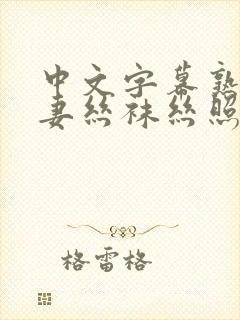 中文字幕熟
妻丝袜丝照
格雷格